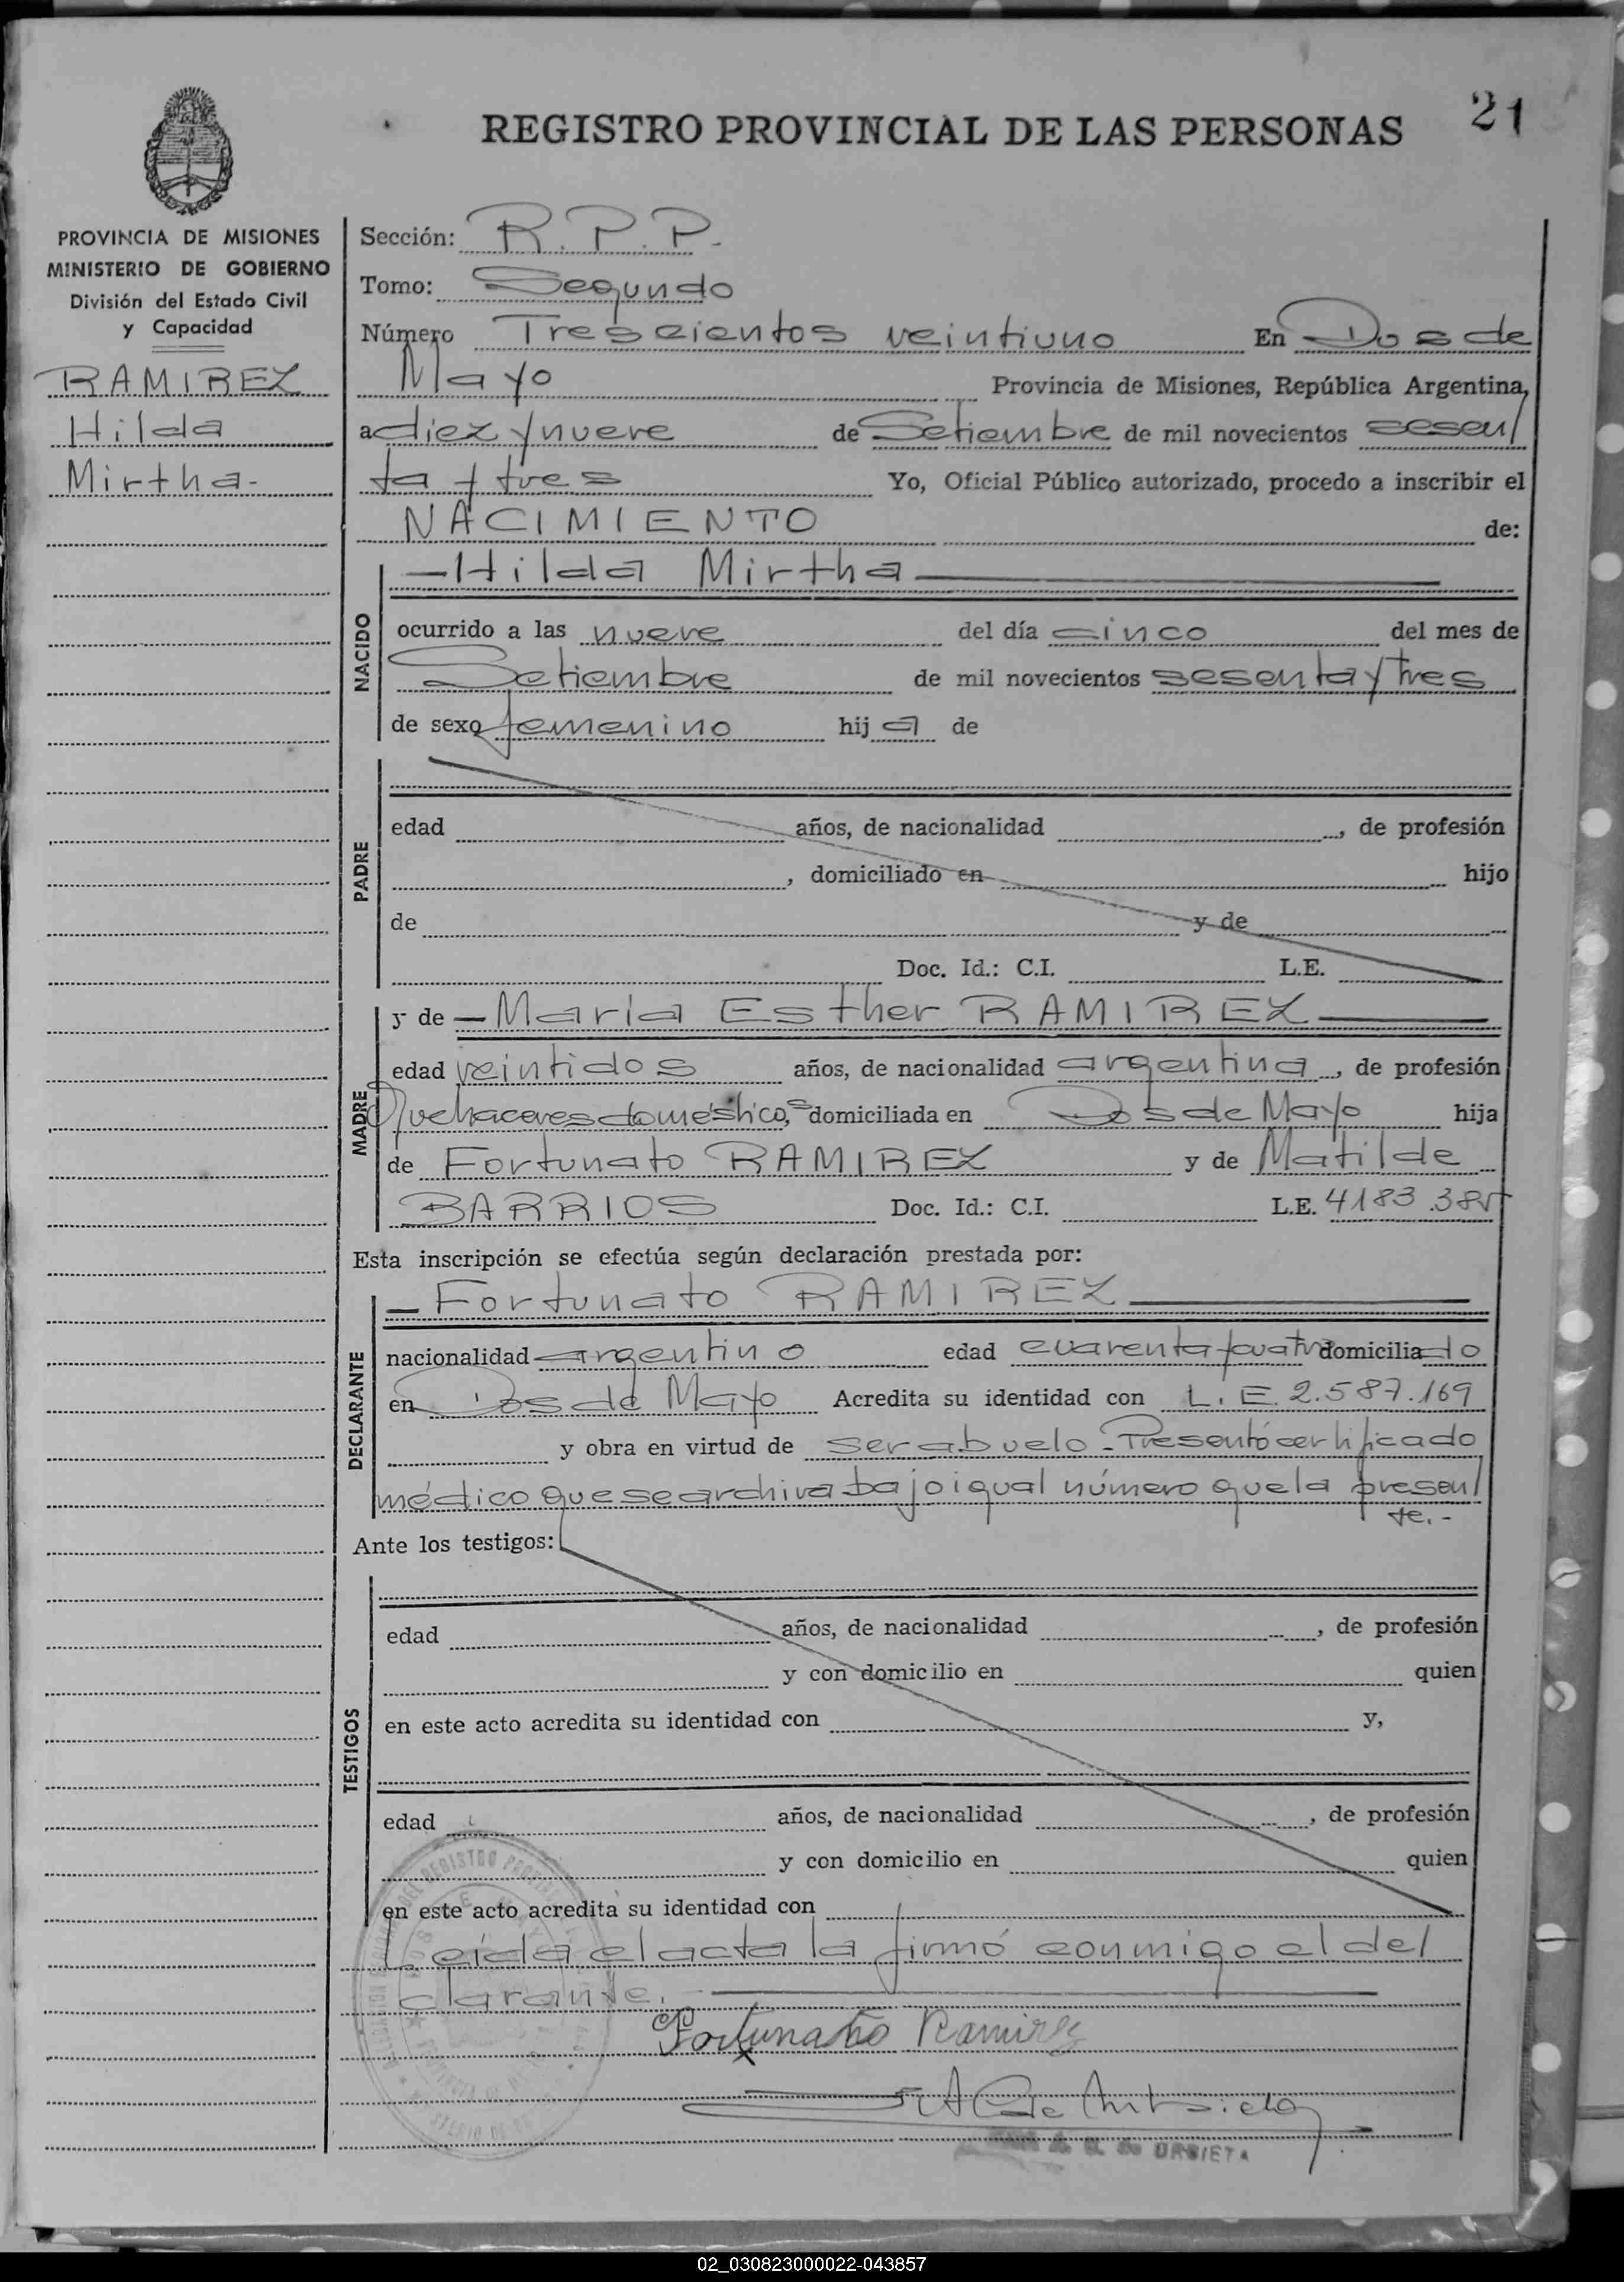 21
REGISTRO PROVINCIAL DE LAS PERSONAS
PROVINCIA DE MISIONES
MINISTERIO DE GOBIERNO
División del Estado Civil
y Capacidad
RAMIREZ
Hilda
Mirtha-
Sección: R.P.P.-
Tomo: Segundo
Número Trescientos veintiuno En Dos de
Mayo Provincia de Misiones, República Argentina,
a diez y nueve de Setiembre de mil novecientos sesen/
ta y tres Yo, Oficial Público autorizado, procedo a inscribir el
NACIMIENTO de:
NACIDO
—Hilda Mirtha—
ocurrido a las nueve del día cinco del mes de
Setiembre de mil novecientos sesenta y tres
de sexo femenino hij a de
PADRE
edad años, de nacionalidad , de profesión
, domiciliado en hijo
de y de
Doc. Id.: C.I. L.E.
MADRE
y de —María Esther RAMIREZ—
edad veintidos años, de nacionalidad argentina, de profesión
Quehaceres domésticos, domiciliada en Dos de Mayo hija
de Fortunato RAMIREZ y de Matilde
BARRIOS Doc. Id.: C.I. L.E. 4183
Esta inscripción se efectúa según declaración prestada por:
DECLARANTE
—Fortunato RAMIREZ—
nacionalidad argentino edad cuarenta y cuatro domiciliado
en Dos de Mayo Acredita su identidad con L.E. 2.587.169
y obra en virtud de ser abuelo.-Presentó certificado
médico que se archiva bajo igual número que la presen/
te.-
Ante los testigos:
TESTIGOS
edad años, de nacionalidad , de profesión
y con domicilio en quien
en este acto acredita su identidad con y,
edad años, de nacionalidad , de profesión
y con domicilio en quien
en este acto acredita su identidad con
Leída el acta la firmó conmigo el de/
clarante.
Fortunato Ramirez
URBIETA
02_030823000022-043857